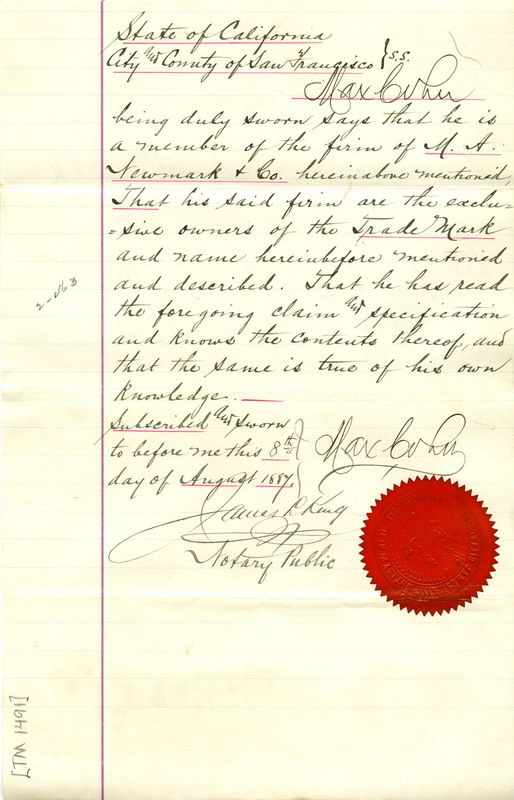 State of California
City and County of San Francisco } S.S.
Max Cohn
being duly sworn says that he is
a member of the firm of M. A.
Newmark & Co. hereinabove mentioned,
That his said firm are the exclu=
=sive owners of the Trade Mark
and name hereinbefore mentioned
and described. That he has read
the foregoing claim and specification
and knows the contents thereof, and
that the same is true of his own
knowledge.
Subscribed and sworn
to before me this 8th
day of August 1887.
Max Cohn
James L. King
Notary Public
2-463
[TM 1491]